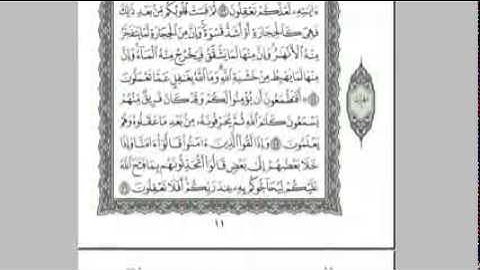 ءَايَٰتِهِۦ لَعَلَّكُمْ تَعْقِلُونَ ثُمَّ قَسَتْ قُلُوبُكُم مِّنۢ بَعْدِ ذَٰلِكَ
فَهِىَ كَٱلْحِجَارَةِ أَوْ أَشَدُّ قَسْوَةً ۚ وَإِنَّ مِنَ ٱلْحِجَارَةِ لَمَا يَتَفَجَّرُ
مِنْهُ ٱلْأَنْهَٰرُ ۚ وَإِنَّ مِنْهَا لَمَا يَشَّقَّقُ فَيَخْرُجُ مِنْهُ ٱلْمَآءُ ۚ وَإِنَّ
مِنْهَا لَمَا يَهْبِطُ مِنْ خَشْيَةِ ٱللَّهِ ۗ وَمَا ٱللَّهُ بِغَٰفِلٍ عَمَّا تَعْمَلُونَ
۞ أَفَتَطْمَعُونَ أَن يُؤْمِنُوا۟ لَكُمْ وَقَدْ كَانَ فَرِيقٌ مِّنْهُمْ
يَسْمَعُونَ كَلَٰمَ ٱللَّهِ ثُمَّ يُحَرِّفُونَهُۥ مِنۢ بَعْدِ مَا عَقَلُوهُ وَهُمْ
يَعْلَمُونَ وَإِذَا لَقُوا۟ ٱلَّذِينَ ءَامَنُوا۟ قَالُوٓا۟ ءَامَنَّا وَإِذَا
خَلَا بَعْضُهُمْ إِلَىٰ بَعْضٍ قَالُوٓا۟ أَتُحَدِّثُونَهُم بِمَا فَتَحَ ٱللَّهُ
عَلَيْكُمْ لِيُحَآجُّوكُم بِهِۦ عِندَ رَبِّكُمْ ۚ أَفَلَا تَعْقِلُونَ
١١